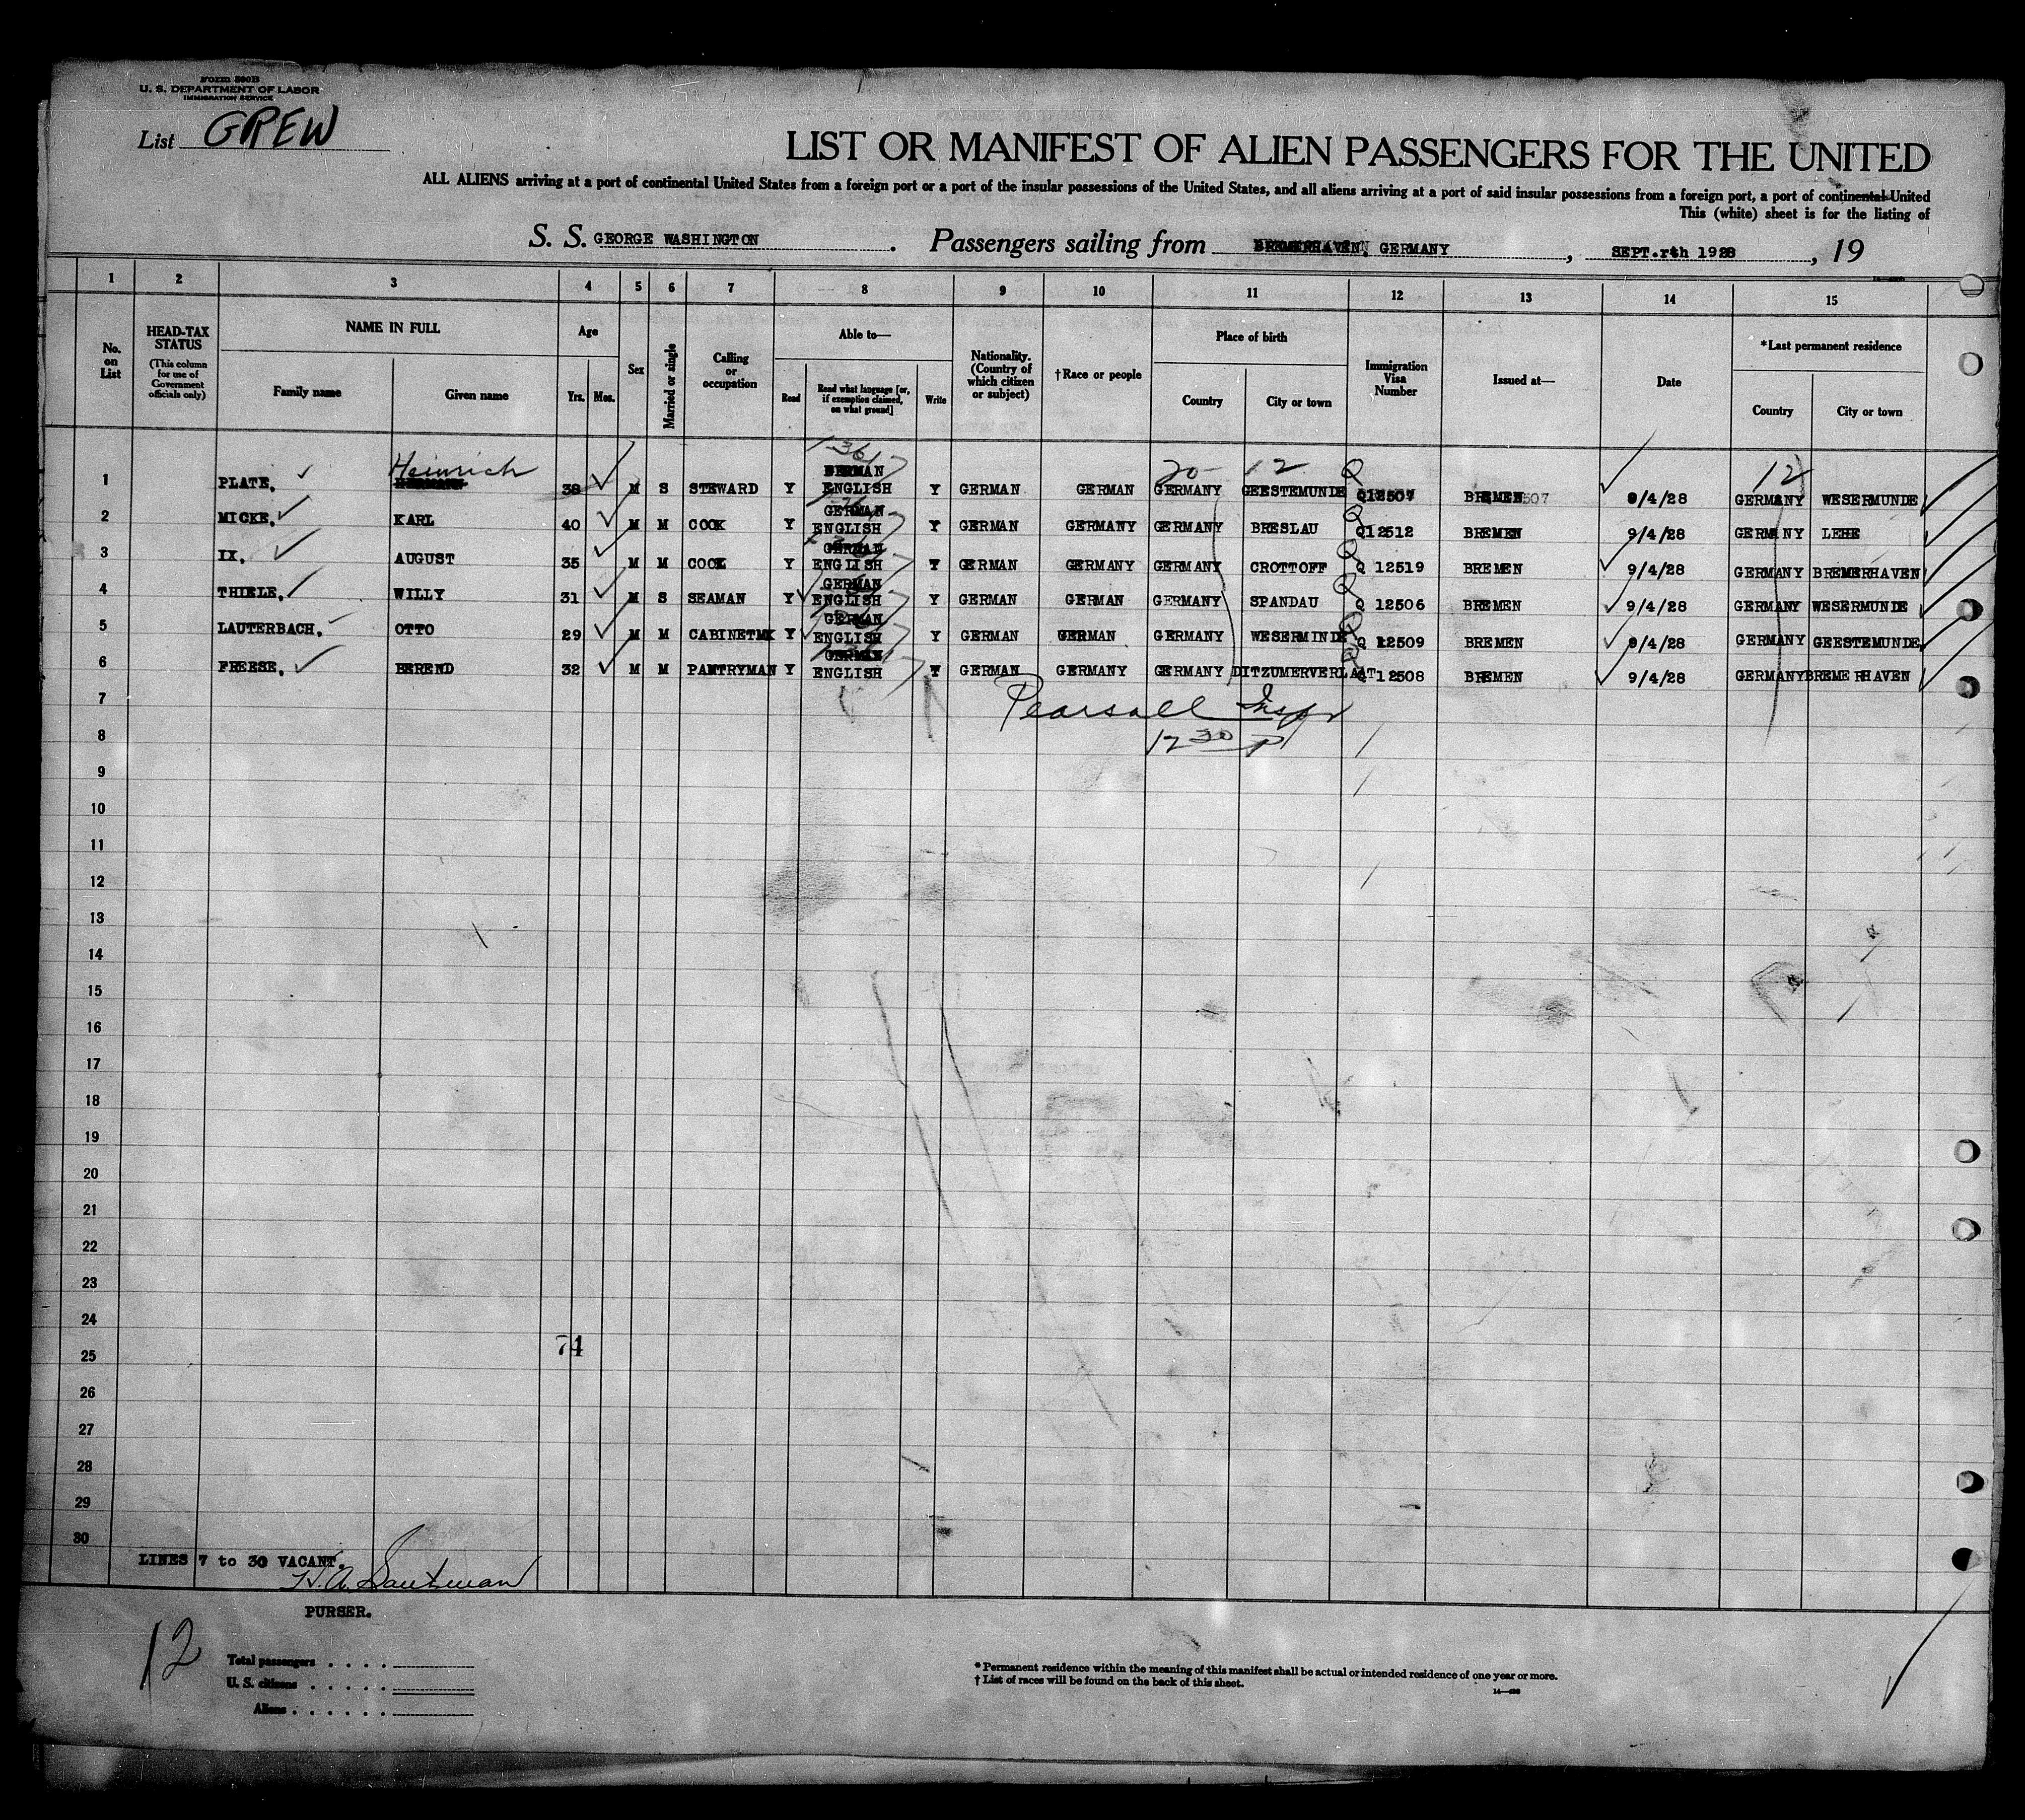 Form 500B
U. S. DEPARTMENT OF LABOR
IMMIGRATION SERVICE
List CREW
LIST OR MANIFEST OF ALIEN PASSENGERS FOR THE UNITED
ALL ALIENS arriving at a port of continental United States from a foreign port or a port of the insular possessions of the United States, and all aliens arriving at a port of said insular possessions from a foreign port, a port of continental United
This (white) sheet is for the listing of
S. S. GEORGE WASHINGTON. Passengers sailing from BREMERHAVEN, GERMANY, SEPT.rth 1928, 19
1 2 3 4 5 6 7 8 9 10 11 12 13 14 15
No. on List
HEAD-TAX STATUS
(This column for use of Government officials only)
NAME IN FULL
Family name
Given name
Age
Yrs. Mos.
Sex
Married or single
Calling or occupation
Able to—
Read
Read what language [or, if exemption claimed, on what ground]
Write
Nationality. (Country of which citizen or subject)
†Race or people
Place of birth
Country
City or town
Immigration Visa Number
Issued at—
Date
*Last permanent residence
Country
City or town
Heinrich
20 12 12
1 PLATE, 38 M S STEWARD Y GERMAN ENGLISH Y GERMAN GERMAN GERMANY GEESTEMUNDE Q12507 BREMEN 9/4/28 GERMANY WESERMUNDE
2 MICKE, KARL 40 M M COOK Y GERMAN ENGLISH Y GERMAN GERMANY GERMANY BRESLAU Q12512 BREMEN 9/4/28 GERMANY LEHE
3 IX, AUGUST 35 M M COOK Y GERMAN ENGLISH Y GERMAN GERMANY GERMANY CROTTOFF Q 12519 BREMEN 9/4/28 GERMANY BREMERHAVEN
4 THIELE, WILLY 31 M S SEAMAN Y GERMAN ENGLISH Y GERMAN GERMAN GERMANY SPANDAU Q 12506 BREMEN 9/4/28 GERMANY WESERMUNDE
5 LAUTERBACH, OTTO 29 M M CABINETMK Y GERMAN ENGLISH Y GERMAN GERMAN GERMANY WESERMINDE Q 12509 BREMEN 9/4/28 GERMANY GEESTEMUNDE
6 FREESE, BEREND 32 M M PANTRYMAN Y GERMAN ENGLISH Y GERMAN GERMANY GERMANY DITZUMERVERLAAT Q 12508 BREMEN 9/4/28 GERMANY BREMERHAVEN
7 Pearsall Inspr
8 12 30 P
9
10
11
12
13
14
15
16
17
18
19
20
21
22
23
24
74
25
26
27
28
29
30
LINES 7 to 30 VACANT.
PURSER.
12
Total passengers
U. S. citizens
Aliens
* Permanent residence within the meaning of this manifest shall be actual or intended residence of one year or more.
† List of races will be found on the back of this sheet.